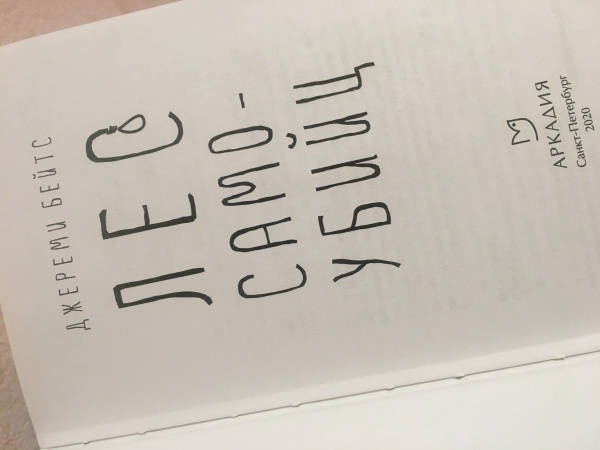 ДЖЕРЕМИ БЕЙТС
ЛЕС
САМО-
УБИЙЦ
АРКАДИЯ
Санкт-Петербург
2020